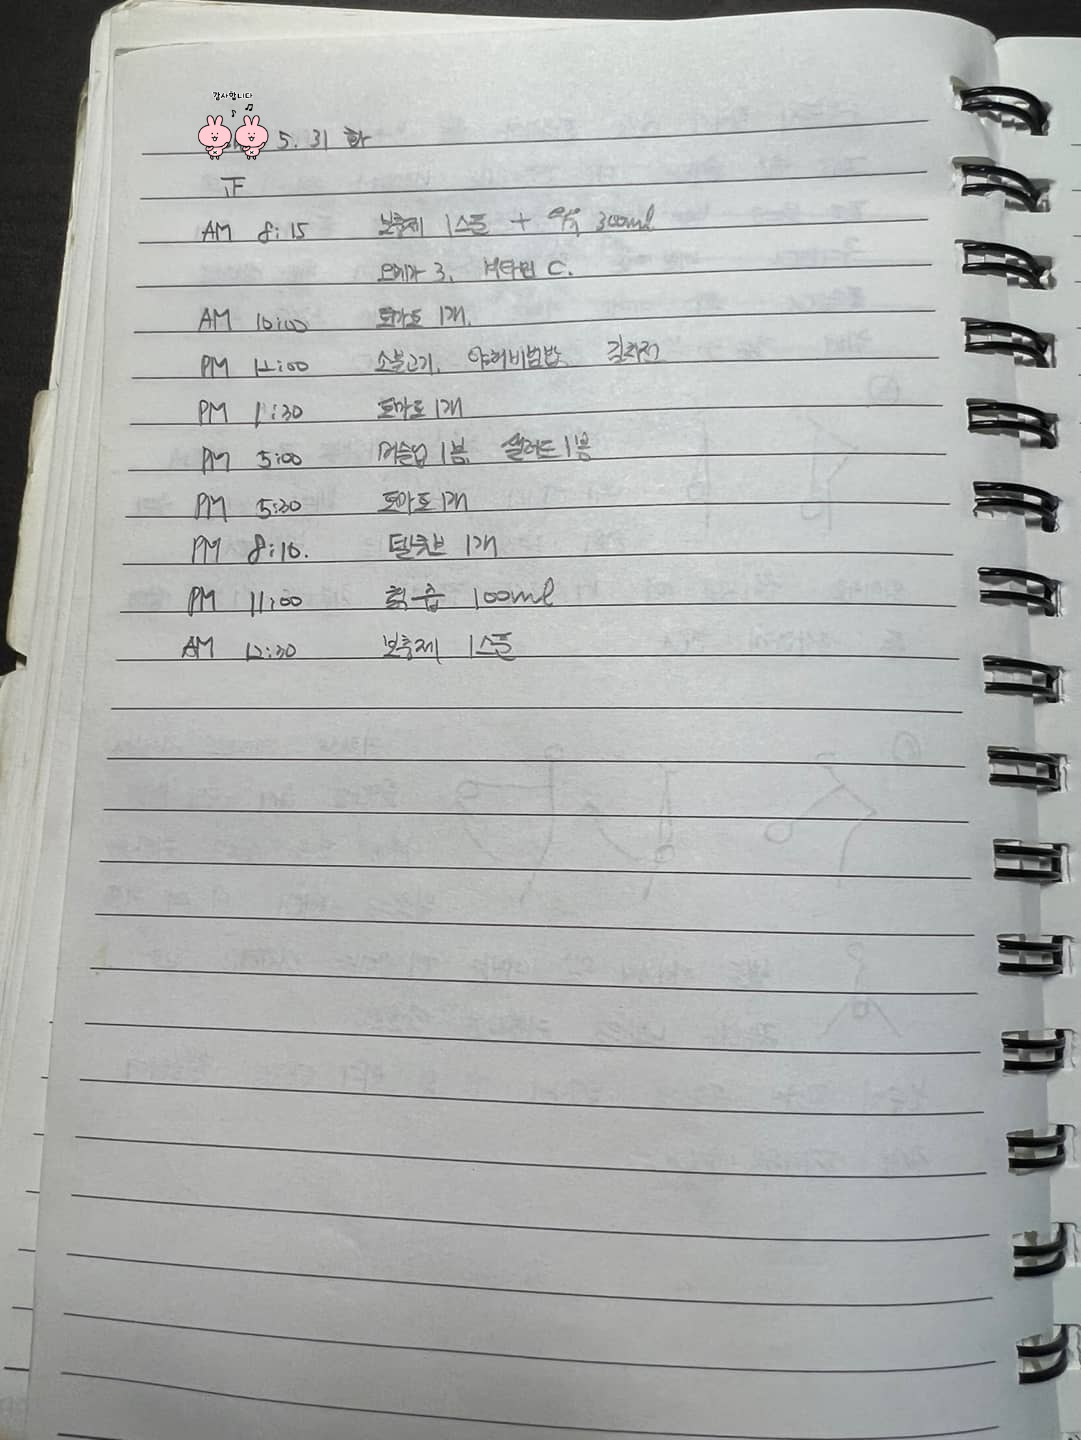 감사합니다
5. 31 화
正
AM 8:15 보충제 1스푼 + 우유 300ml
오메가 3. 비타민 C.
AM 10:00 토마토 1개.
PM 12:00 소불고기. 야채비빔밥. 김치전
PM 1:30 토마토 1개
PM 5:00 머슬업 1봉. 샐러드 1봉
PM 5:30 토마토 1개
PM 8:10. 단백바 1개
PM 11:00 칡즙 100ml
AM 12:30 보충제 1스푼